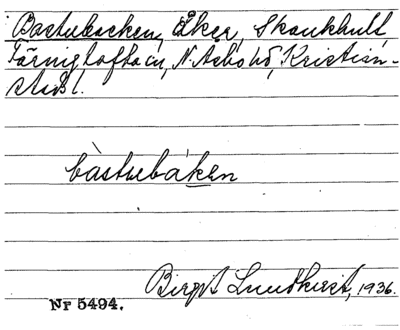 Bastubacken, Åker, Skånkhult,
Färingtofta sn, N. Åsbo hd, Kristian-
stads l.
bàstubáken
Birgit Lundkvist, 1936.
Nr 5494.